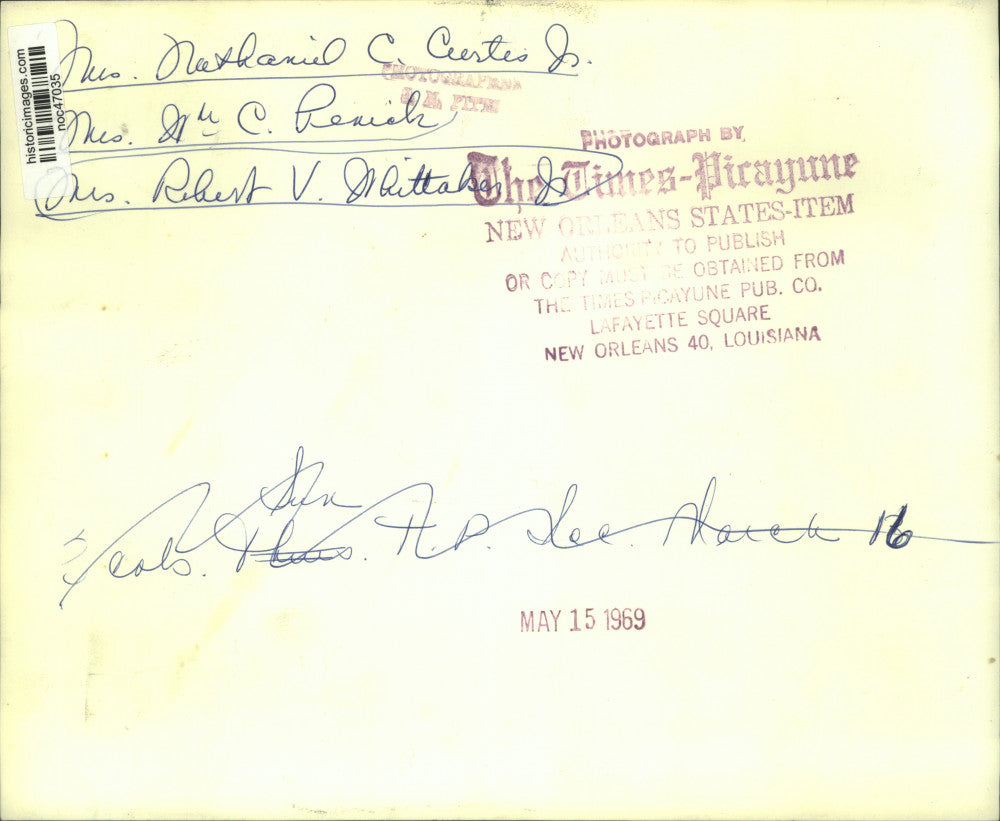 historicimages.com
noc47035
Mrs. Nathaniel C. Curtis Jr.
PHOTOGRAPHER
Mrs. Wm C. Penick
Mrs. Robert V. Whittaker Jr.
PHOTOGRAPH BY
The Times-Picayune
NEW ORLEANS STATES-ITEM
AUTHORITY TO PUBLISH
OR COPY MUST BE OBTAINED FROM
THE TIMES-PICAYUNE PUB. CO.
LAFAYETTE SQUARE
NEW ORLEANS 40, LOUISIANA
Sun
cols. Thurs. T.P. Sec. March 16
MAY 15 1969